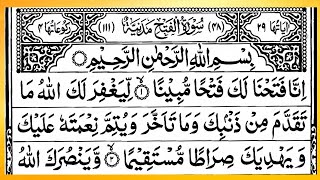 اٰيَاتُهَا ٢٩ (٤٨) سُوْرَةُ الْفَتْحِ مَدَنِيَّةٌ (١١١) رُكُوْعَاتُهَا ٤
بِسْمِ اللّٰهِ الرَّحْمٰنِ الرَّحِيْمِ
اِنَّا فَتَحْنَا لَكَ فَتْحًا مُّبِيْنًا ۙ۝١ لِّيَغْفِرَ لَكَ اللّٰهُ مَا
تَقَدَّمَ مِنْ ذَنْۢبِكَ وَمَا تَاَخَّرَ وَيُتِمَّ نِعْمَتَهٗ عَلَيْكَ
وَيَهْدِيَكَ صِرَاطًا مُّسْتَقِيْمًا ۙ۝٢ وَّيَنْصُرَكَ اللّٰهُ